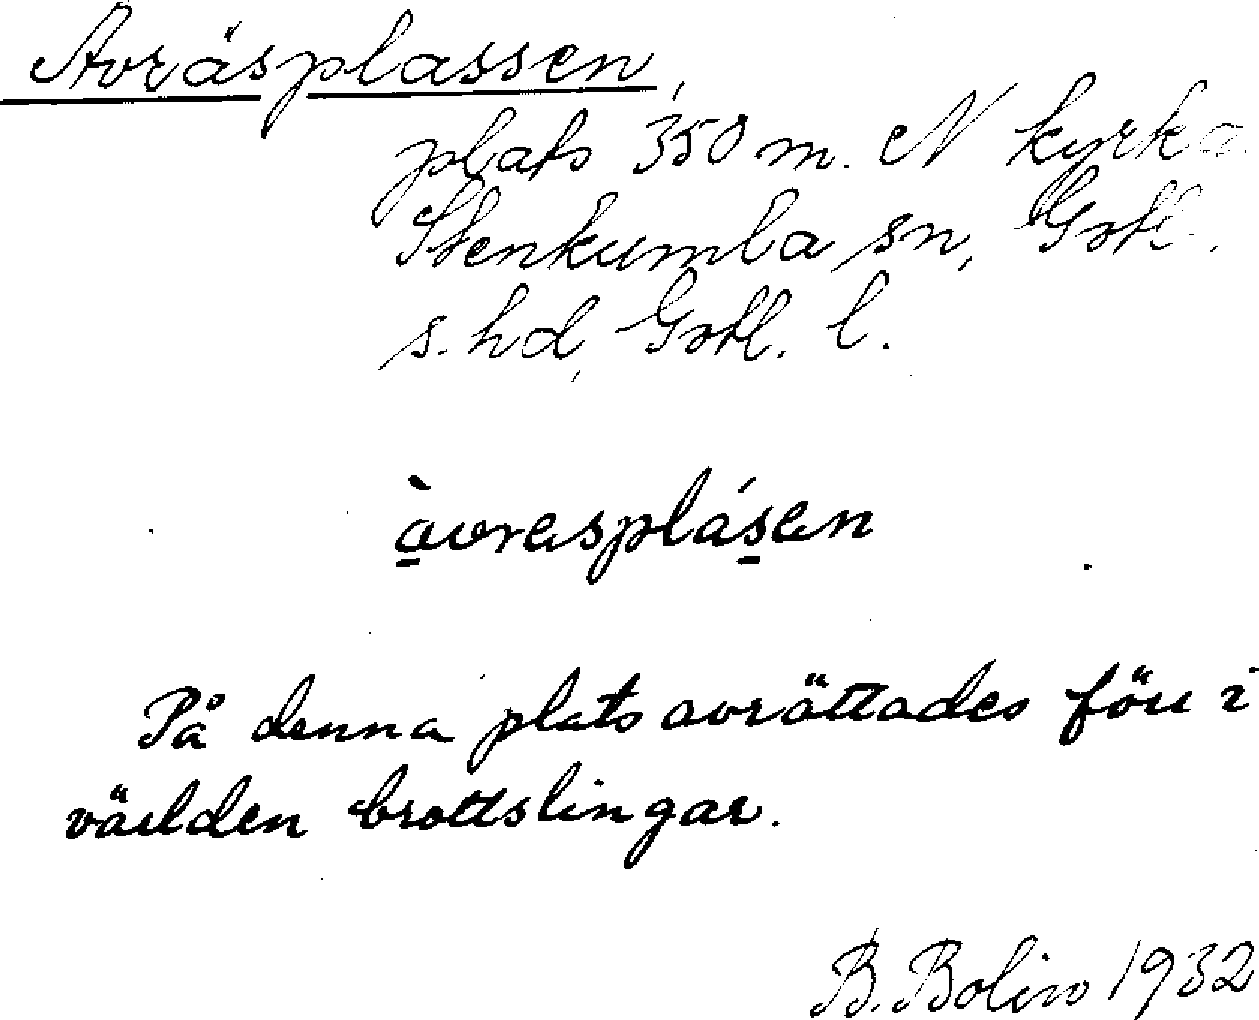 Avräsplassen,
plats 350 m. N kyrka
Stenkumla sn, Gotl.
s. hd, Gotl. l.
àvrasplásen
På denna plats avrättades förr i
världen brottslingar.
B. Bolin 1932